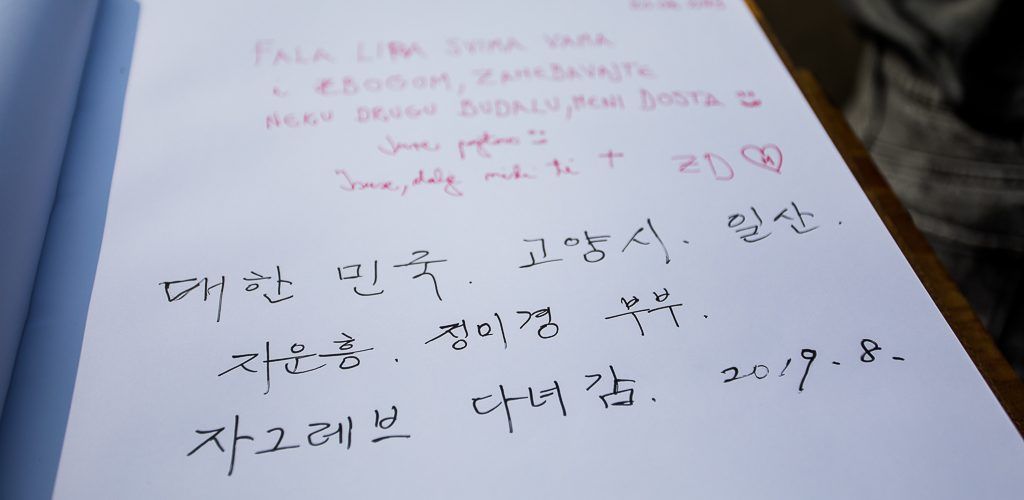 FALA LIPA SVIMA VAMA
i ZBOGOM, ZAJEBAVAJTE
NEKU DRUGU BUDALU, MENI DOSTA
+ ZD
대한 민국. 고양시. 일산.
자운흥. 정미경 부부.
자그레브 다녀감. 2019. 8.